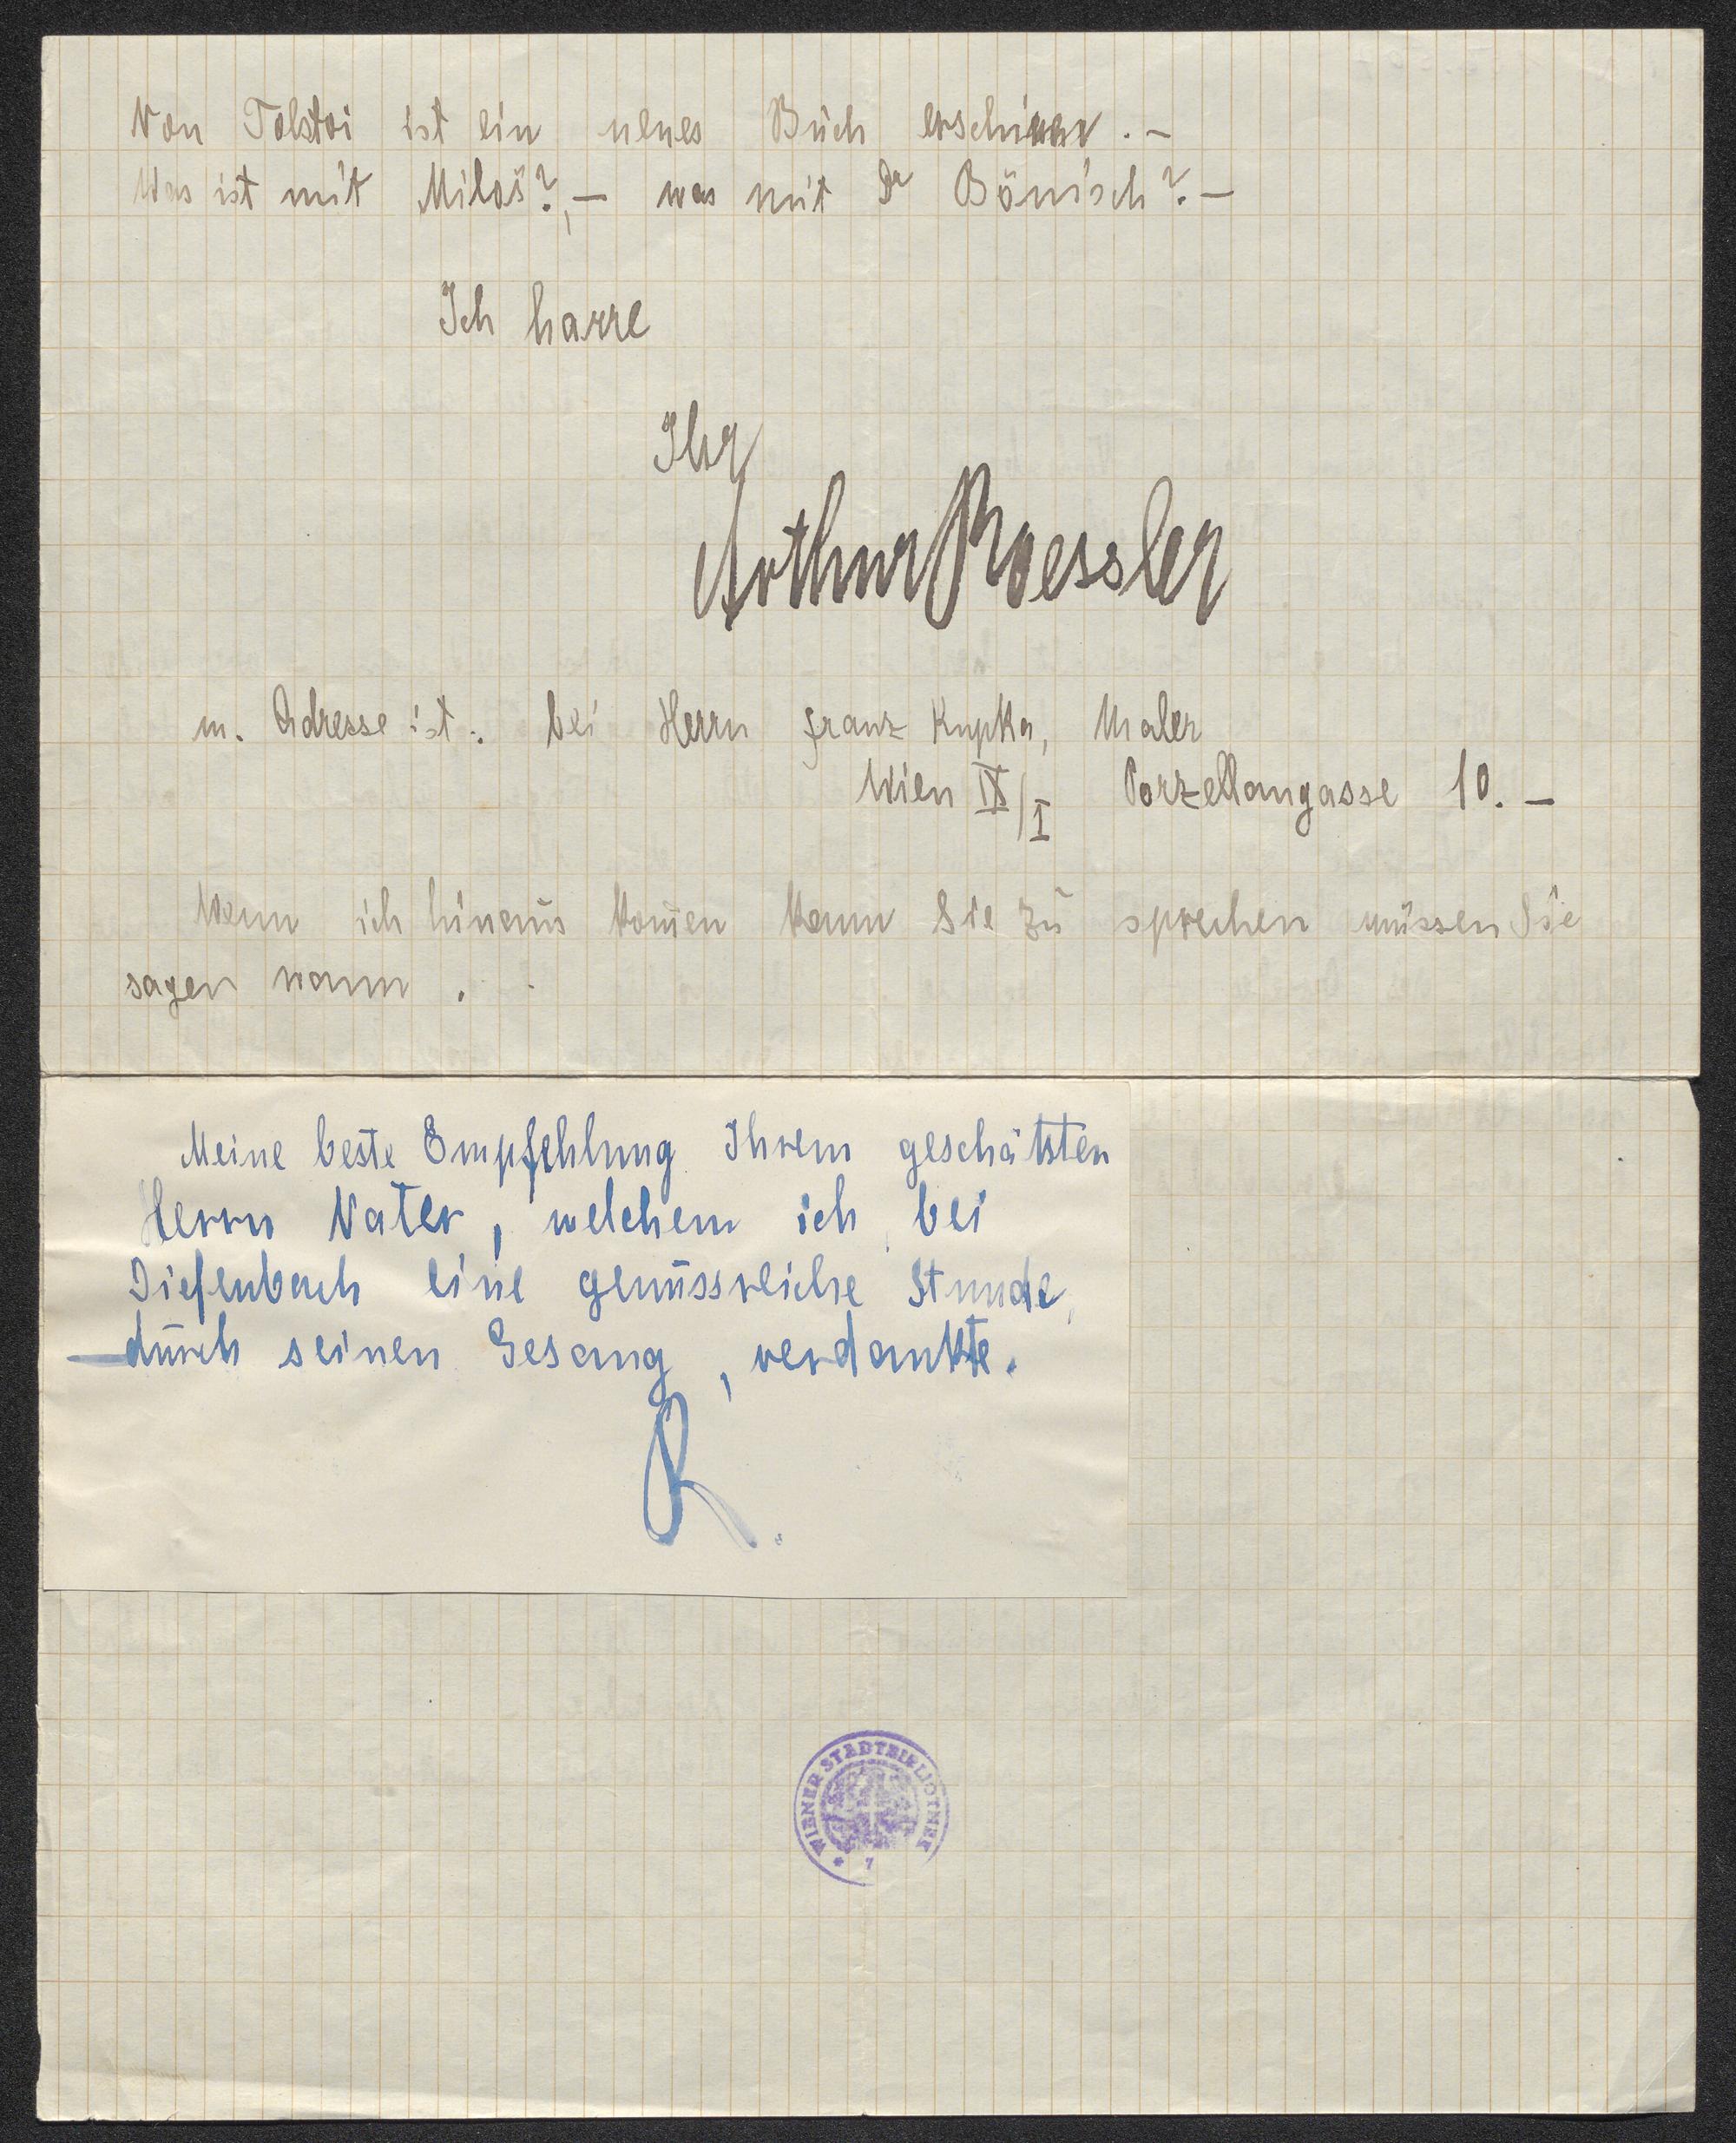 Von Tolstoi ist ein neues Buch erschienen. –
Was ist mit Miloš?, – was mit Dr Bönisch? –
Ich harre
Ihr
Arthur Roessler
m. Adresse ist: bei Herrn Franz Kupka, Maler
Wien IX/I Porzellangasse 10. –
Wenn ich hinaus kom̅en kann Sie zu sprechen müssen Sie
sagen wann.
Meine beste Empfehlung Ihrem geschätsten
Herrn Vater, welchem ich bei
Diefenbach eine genussreiche Stunde,
durch seinen Gesang, verdankte.
R.
WIENER STADTBIBLIOTHEK
* 7